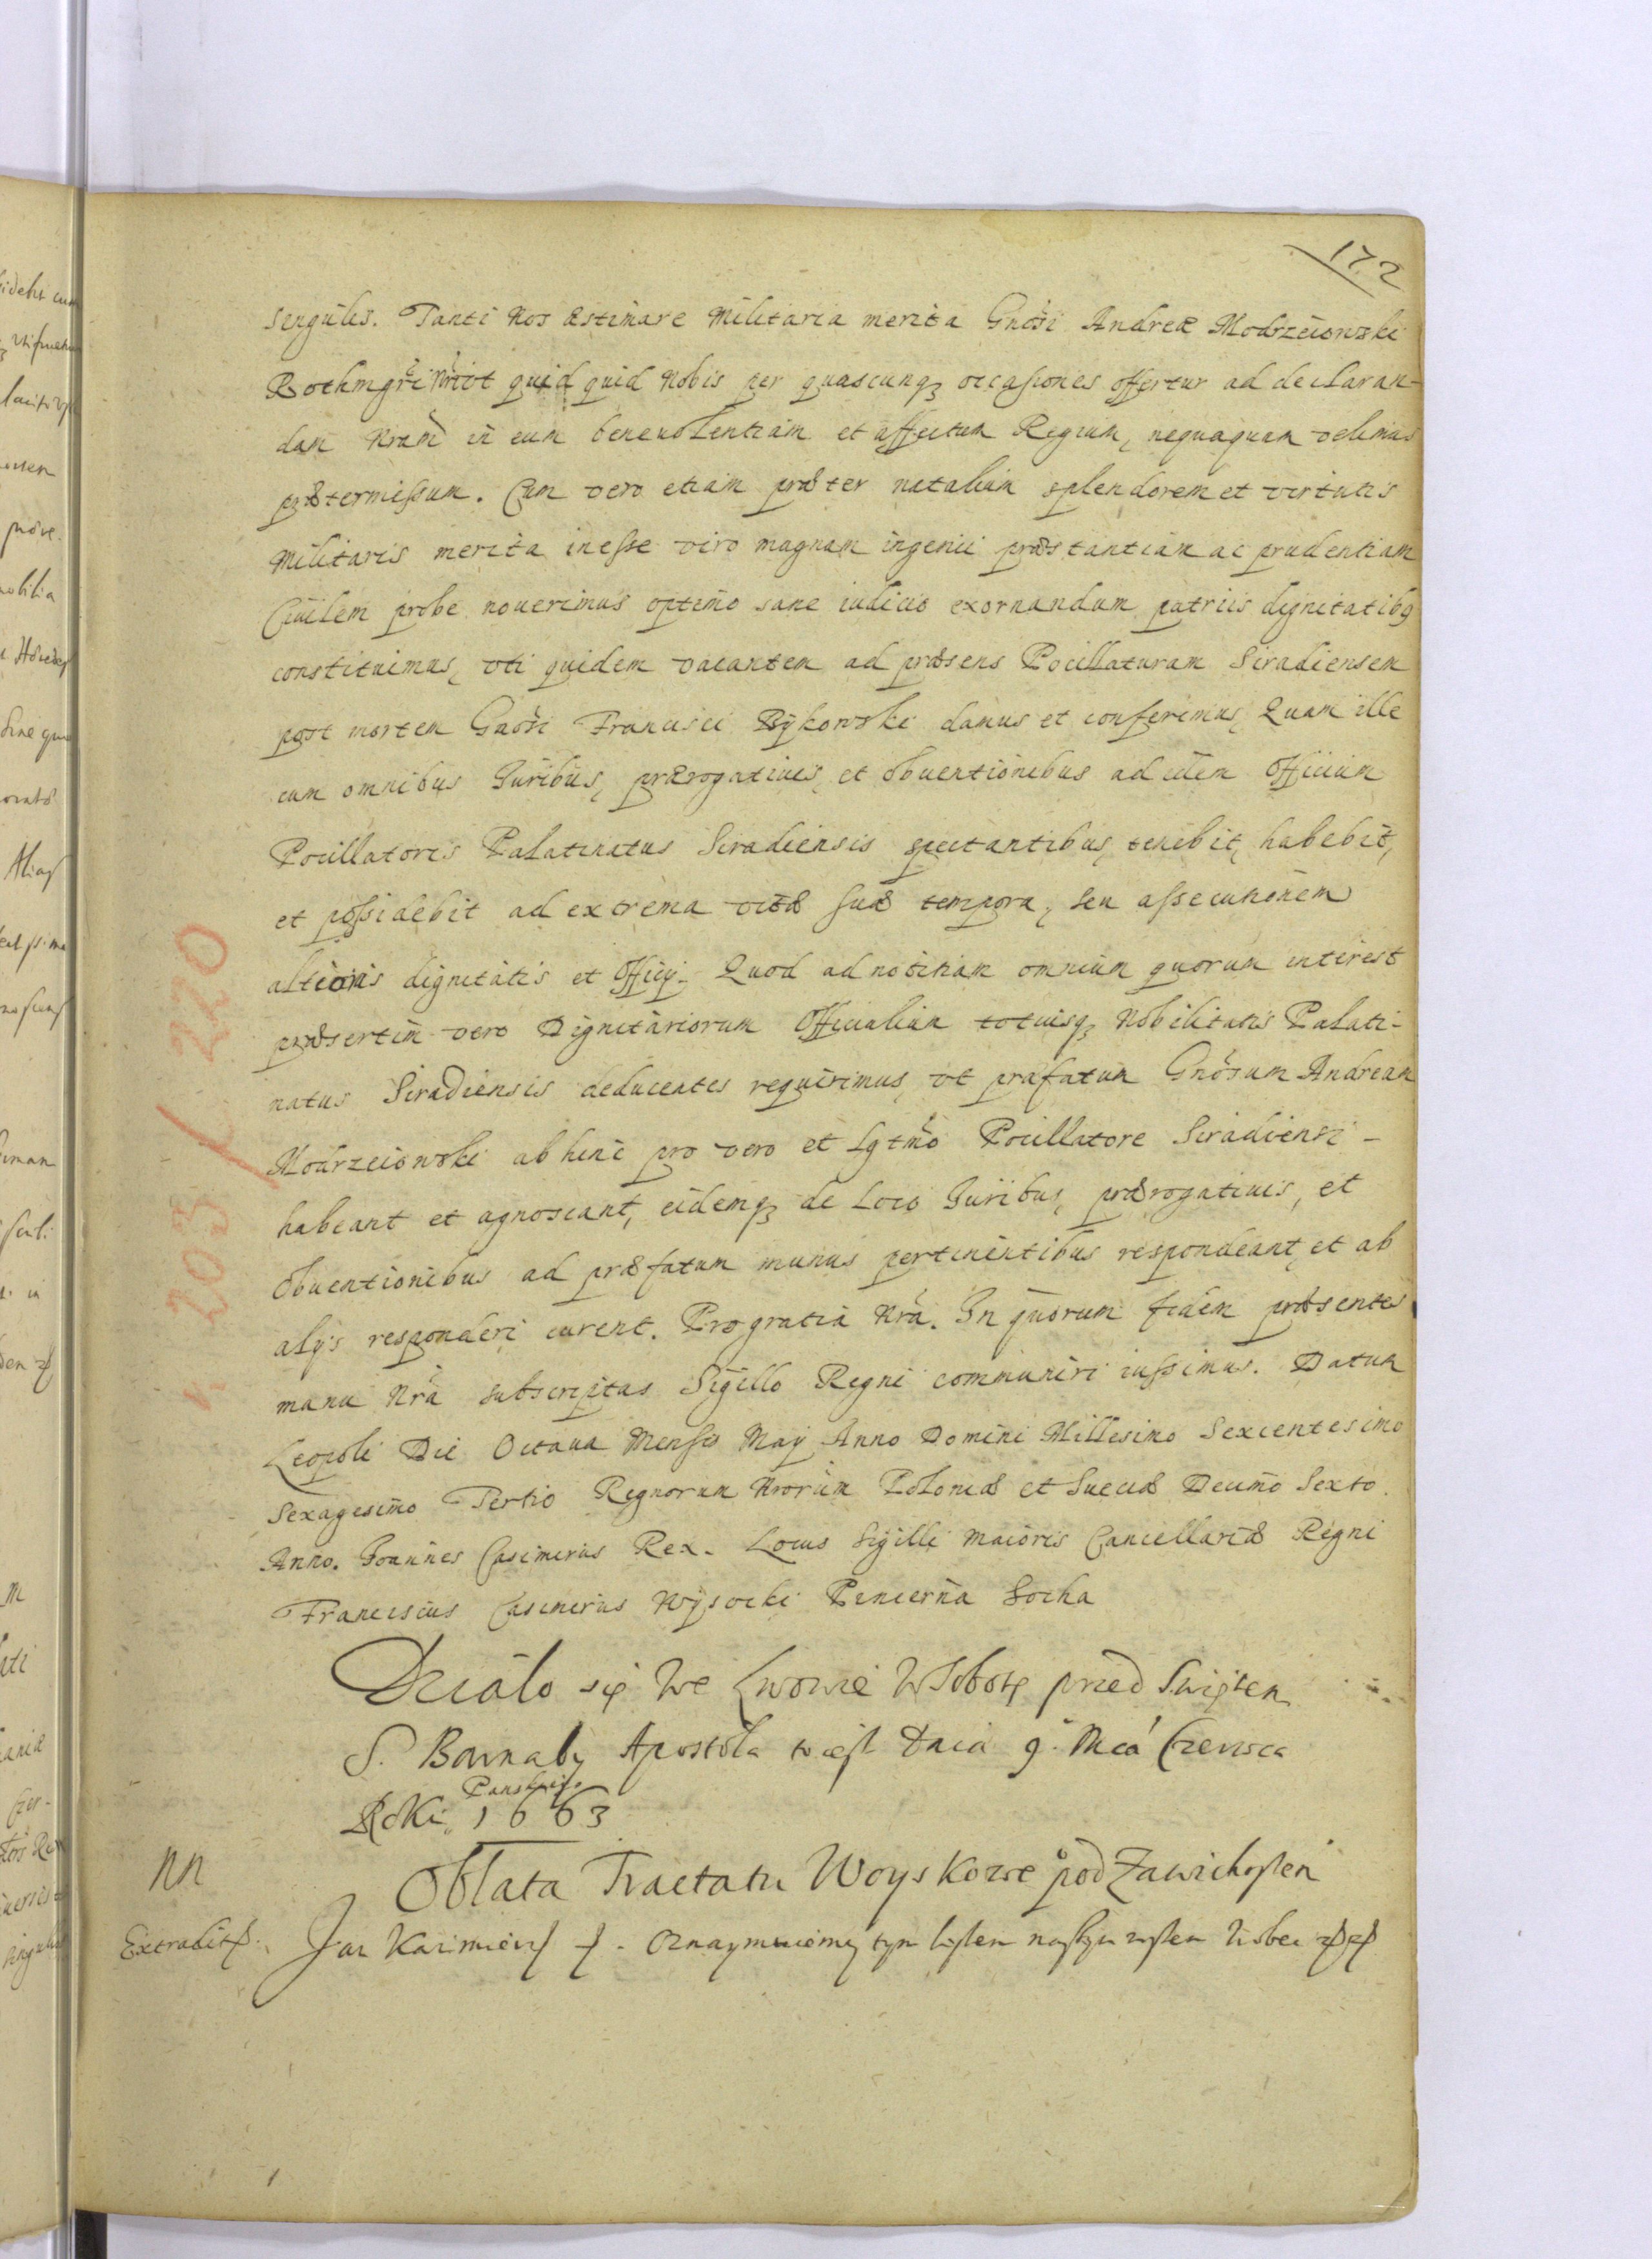 172
singulis. Tanti Nos æstimare Militaria merita Gnősi Andreæ Modrzeiowski
Rothmgrĩ Nrĩ vt quid quid Nobis per quascunqꝫ occasiones offertur ad declaran-
dam Nram̃ in eum beneuolentiam et affectum Regium, nequaquam velimus
prætermissum. Cum vero etiam præter natalium splendorem et virtutis
Militaris merita inesse viro magnam ingenii præstantiam ac prudentiam
Ciuilem probe nouerimus optimo sane iudicio exornandum patriis dignitatibꝫ
constituimus, vti quidem vacantem ad præsens Pocillaturam Siradiensem
post mortem Gnősi Francisci Bÿkowski damus et conferimus, Quam ille
cum omnibus Iuribus, prærogatiuis, et obuentionibus ad idem Officium
Pocillatoris Palatinatus Siradiensis spectantibus, tenebit, habebit,
et possidebit ad extrema vitæ suæ tempora, seu assecutionem
altioris dignitatis et Officÿ. Quod ad notitiam omnium quorum interest
præsertim vero Dignitariorum Officialium totiusqꝫ Nobilitatis Palati-
natus Siradiensis deducentes requirimus, vt præfatum Gnősum Andream
Modrzeiowski ab hinc pro vero et Lgtmő Pocillatore Siradiensi -
habeant et agnoscant, eidemqꝫ de Loco Iuribus, prærogatiuis, et
obuentionibus ad præfatum munus pertinentibus respondeant, et ab
alÿs responderi curent. Pro gratia Nrã. In quorum fidem præsentes
manu Nrã subscriptas Sigillo Regni communiri iussimus. Datum
Leopoli Die Octaua Mensis Maÿ Anno Domini Millesimo Sexcentesimo
Sexagesimo Tertio Regnorum Nrorum̃ Poloniæ et Sueciæ Decimo Sexto
Anno. Ioannes Casimirus Rex. Locus Sigilli maioris Cancellariæ Regni
Franciscus Casimirus Wÿsocki Pincerna Socha
Działo się We Lwowie W Sobotę przed Swiętem
S. Barnaby Apostoła to iest Dnia 9. Mcá Czerwca
Panskiego
Roku 1663
NN
Oblata Tractatu Woyskowe pod Zawichostem
Extradit
Jan Kazimierz Oznaymuiemy tym listem naszym
203 / 220